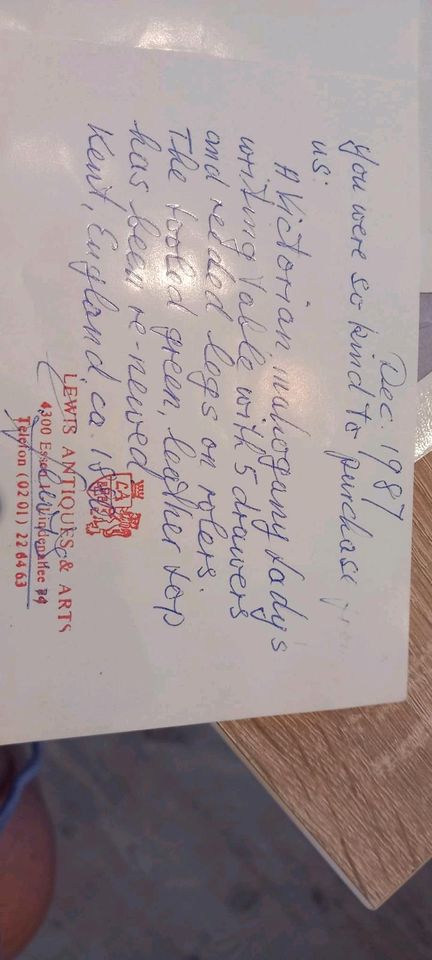 Dec. 1987
You were so kind to purchase
us:
A Victorian mahogany lady's
writing table with 5 drawers
and reeded legs on rolers.
The tooled green, leather top
has been re-newed
Kent, England, ca.
LEWIS ANTIQUES & ARTS
4300 Essen 1
Telefon (0201) 22 64 63